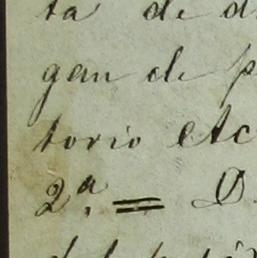 ta de d
gan de p
torio etc
2ª. = D.